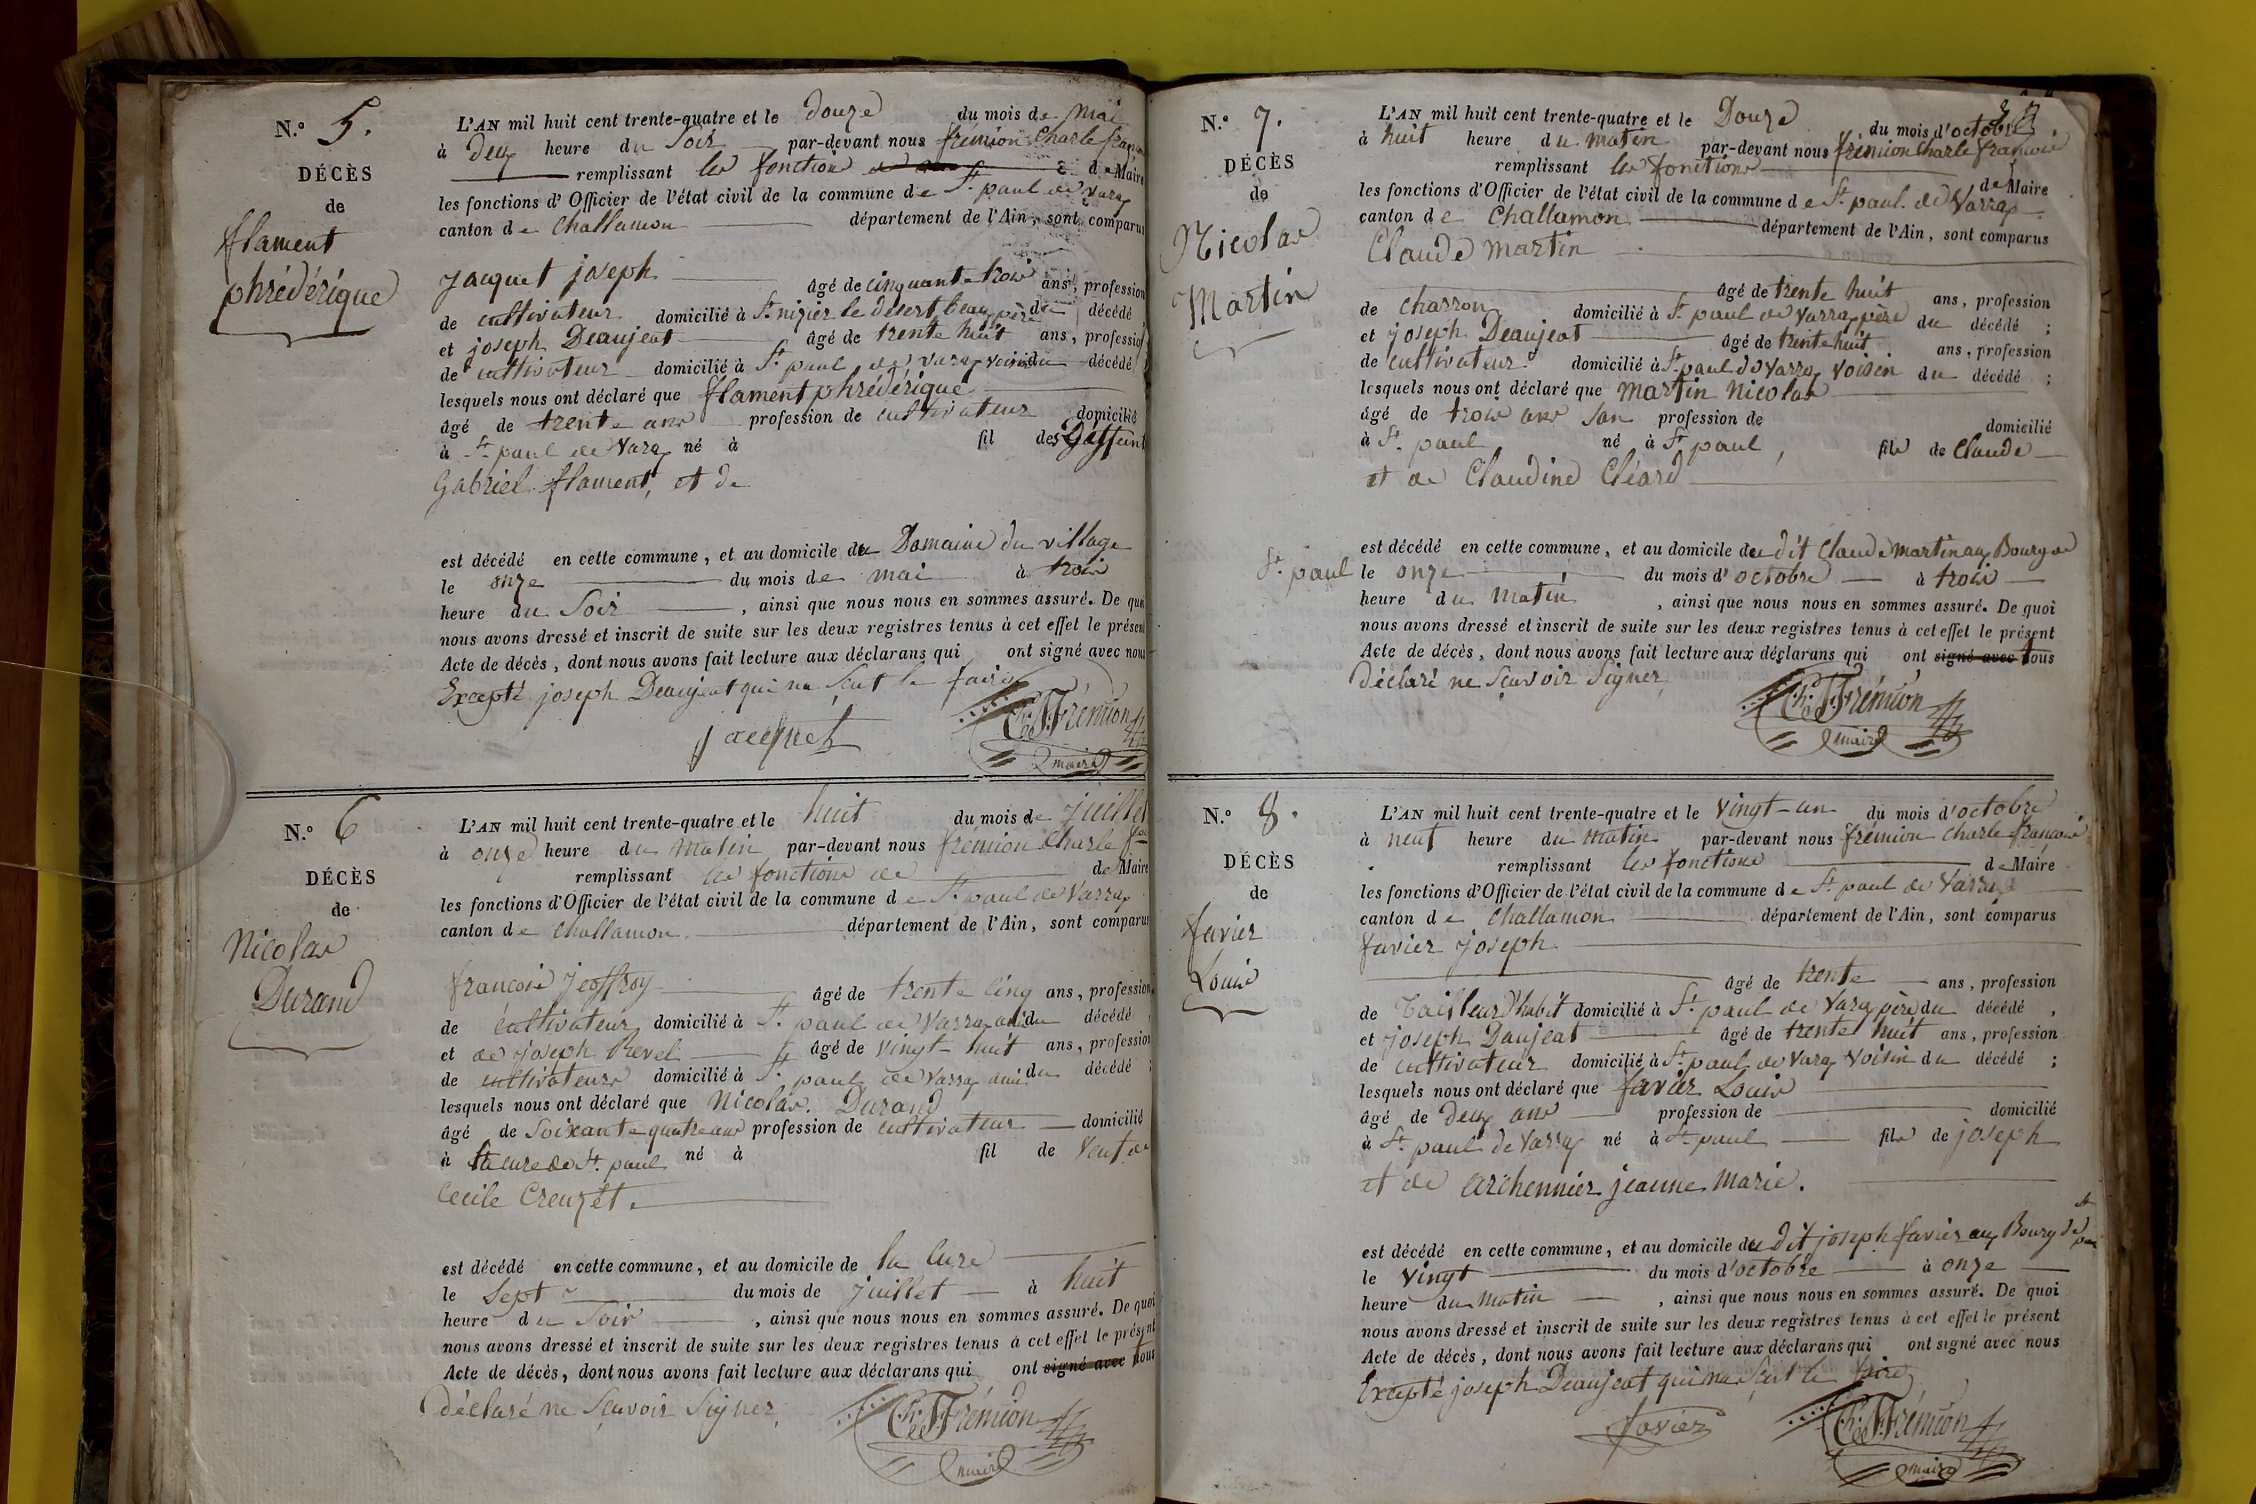 N.o 5.
DÉCÈS
de
flament
phrédérique
L'AN mil huit cent trente-quatre et le douze du mois de mai
à deux heure du Soir par-devant nous frémion Charle françois
remplissant les fonction de Maire
les fonctions d'Officier de l'état civil de la commune de St. paul de Varax
canton de Challamon département de l'Ain, sont comparus
Jacquet joseph âgé de cinquante trois ans, profession
de cultivateur domicilié à St. nizier le désert beaupère du décédé
et joseph Deaujeat âgé de trente huit ans, profession
de cultivateur domicilié à St. paul de varax voisin du décédé
lesquels nous ont déclaré que flament phrédérique
âgé de trente ans profession de cultivateur domicilié
à St. paul de Varax né à fil des
Gabriel flament, et de
est décédé en cette commune, et au domicile du Domaine du village
le onze du mois de mai à trois
heure du Soir, ainsi que nous nous en sommes assuré. De quoi
nous avons dressé et inscrit de suite sur les deux registres tenus à cet effet le présent
Acte de décès, dont nous avons fait lecture aux déclarans qui ont signé avec nous
Excepté joseph Deaujeat qui ne Scut le faire
jacquet
Ch. F. Frémion
maire
N.o 6
DÉCÈS
de
Nicolas
Durand
L'AN mil huit cent trente-quatre et le huit du mois de juillet
à onze heure du Matin par-devant nous frémion Charle f
remplissant les fonctions de de Maire
les fonctions d'Officier de l'état civil de la commune de St. paul de Varax
canton de Challamon département de l'Ain, sont comparus
françois jeoffroy âgé de trente cinq ans, profession
de cultivateur domicilié à St. paul de Varax ami du décédé
et de joseph Revel âgé de vingt-huit ans, profession
de cultivateurs domicilié à St. paul de Varax ami du décédé ;
lesquels nous ont déclaré que Nicolas Durand
âgé de Soixante quatre ans profession de cultivateur domicilié
à la cure de St. paul né à fil de
Cecile Creuzet.
est décédé en cette commune, et au domicile de la Cure
le Sept du mois de juillet à huit
heure du Soir, ainsi que nous nous en sommes assuré. De quoi
nous avons dressé et inscrit de suite sur les deux registres tenus à cet effet le présent
Acte de décès, dont nous avons fait lecture aux déclarans qui ont signé avec tous
déclaré ne Scavoir Signer,
Ch. F. Frémion
maire
N.o 7.
DÉCÈS
de
Nicolas
Martin
L'AN mil huit cent trente-quatre et le Douze du mois d'octobre
à huit heure du matin par-devant nous frémion Charle françois
remplissant les fonctions de Maire
les fonctions d'Officier de l'état civil de la commune de St. paul de Varax
canton de Challamon département de l'Ain, sont comparus
Claude martin
âgé de trente huit ans, profession
de charron domicilié à St. paul de Varax père du décédé ;
et joseph Deaujeat âgé de trente huit ans, profession
de cultivateur domicilié à St. paul de Varax voisin du décédé ;
lesquels nous ont déclaré que martin Nicolas
âgé de trois ans son profession de domicilié
à St. paul né à St. paul, fils de Claude
et de Claudine Cléard
est décédé en cette commune, et au domicile du dit Claude martin au Bourg de
St. paul le onze du mois d'octobre à trois
heure du Matin, ainsi que nous nous en sommes assuré. De quoi
nous avons dressé et inscrit de suite sur les deux registres tenus à cet effet le présent
Acte de décès, dont nous avons fait lecture aux déclarans qui ont signé avec tous
déclaré ne Scavoir Signer
Ch. F. Frémion
maire
N.o 8.
DÉCÈS
de
favier
Louis
L'AN mil huit cent trente-quatre et le vingt-un du mois d'octobre
à neuf heure du Matin par-devant nous frémion Charle françois
remplissant les fonctions de Maire
les fonctions d'Officier de l'état civil de la commune de St. paul de Varax
canton de Challamon département de l'Ain, sont comparus
favier joseph
âgé de trente ans, profession
de Tailleur d'habit domicilié à St. paul de Varax père du décédé,
et joseph Daujeat âgé de trente huit ans, profession
de cultivateur domicilié à St. paul de Varax Voisin du décédé ;
lesquels nous ont déclaré que favier Louis
âgé de deux ans profession de domicilié
à St. paul de Varax né à St. paul fils de joseph
et de archennier jeanne Marie.
est décédé en cette commune, et au domicile du Dit joseph favier au Bourg de St. paul
le vingt du mois d'octobre à onze
heure du Matin, ainsi que nous nous en sommes assuré. De quoi
nous avons dressé et inscrit de suite sur les deux registres tenus à cet effet le présent
Acte de décès, dont nous avons fait lecture aux déclarans qui ont signé avec nous
Excepté joseph Deaujeat qui ne Scut le faire
favier
Ch. F. Frémion
maire